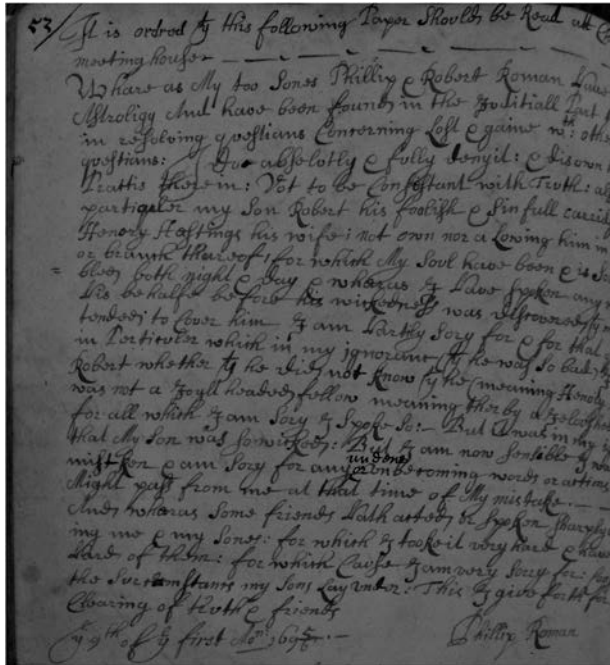 53/ It is ordred yt this following Paper Should be Read att
meeting house
Whare as My too Sones Phillip & Robert Roman have
Astroligy And have been found in the Part
in resolving questians Concerning Lost & gaine wth: othe
questians: I Doe absolutly & fully deny it: & disown
Prattis therein: Not to be Consistant with Truth: a
particuler my Son Robert his foolish & Sinfull carri
Henery Hastings his wife: not own nor alowing him in
or branch thareof, for which My Soul have been & is
bleed both night & Day & wharas I have Spoken any
his behalfe before his wickedness was discovered
tended to Cover him I am hartly Sory for & for that
in Perticuler which in my ignorance (yt he was so bad)
Robert whether yt he did not know yt he (meaning Henery
was not a headed fellow meaning therby a
for all which I am Sory I Spoke So:- But it was in my
that My Son was so wicked: But I am now Sensible I w
mistken & am Sory for any undenes or onbecoming words or actions
Might pass from me at that time of My mistake.
And wharas Some friends hath acted or Spoken Sharply
ing me & my Sones: for which I tooke it very hard & ha
hard of them: for which Cause I am very Sorry for:
the Surcumstans my Sons Lay under: This I give forth for
Clearing of truth & friends
ye 9th of ye first Mo: 169 Phillip Roman